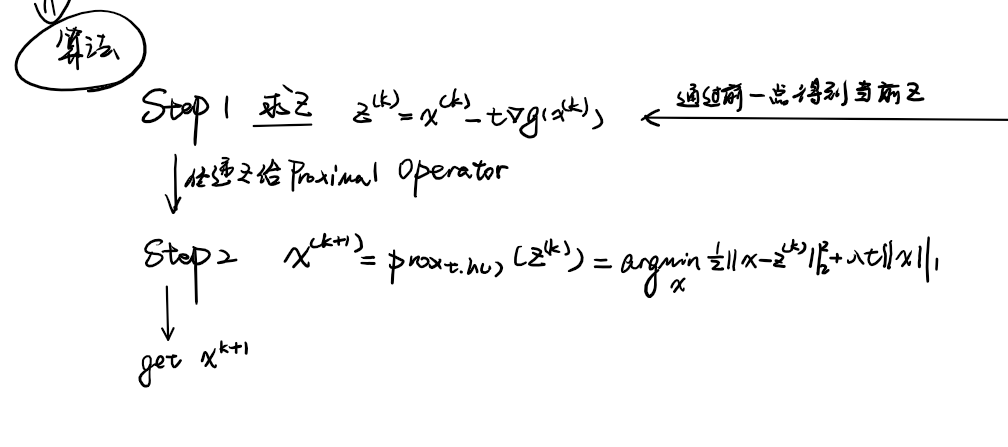 算法
Step 1 求z z^(k) = x^(k) - t∇g(x^(k)) 通过前一点得到当前z
传递z给 Proximal Operator
Step 2 x^(k+1) = prox_{t·h(·)} (z^(k)) = argmin_x 1/2 ||x - z^(k)||_2^2 + λt||x||_1
get x^{k+1}